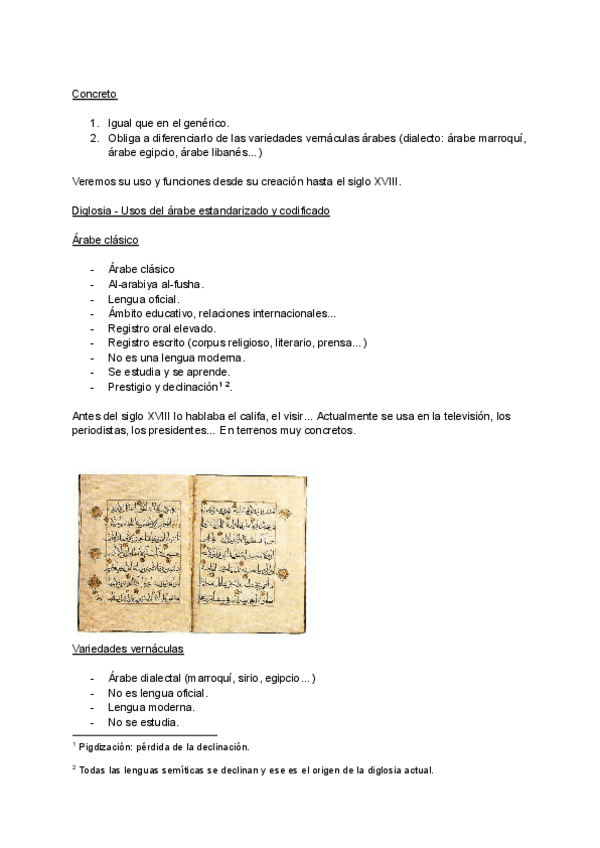 Concreto
1. Igual que en el genérico.
2. Obliga a diferenciarlo de las variedades vernáculas árabes (dialecto: árabe marroquí,
árabe egipcio, árabe libanés...)
Veremos su uso y funciones desde su creación hasta el siglo XVIII.
Diglosia - Usos del árabe estandarizado y codificado
Árabe clásico
- Árabe clásico
- Al-arabiya al-fusha.
- Lengua oficial.
- Ámbito educativo, relaciones internacionales...
- Registro oral elevado.
- Registro escrito (corpus religioso, literario, prensa...)
- No es una lengua moderna.
- Se estudia y se aprende.
- Prestigio y declinación¹ ².
Antes del siglo XVIII lo hablaba el califa, el visir... Actualmente se usa en la televisión, los
periodistas, los presidentes... En terrenos muy concretos.
Variedades vernáculas
- Árabe dialectal (marroquí, sirio, egipcio...)
- No es lengua oficial.
- Lengua moderna.
- No se estudia.
¹ Pigdización: pérdida de la declinación.
² Todas las lenguas semíticas se declinan y ese es el origen de la diglosia actual.